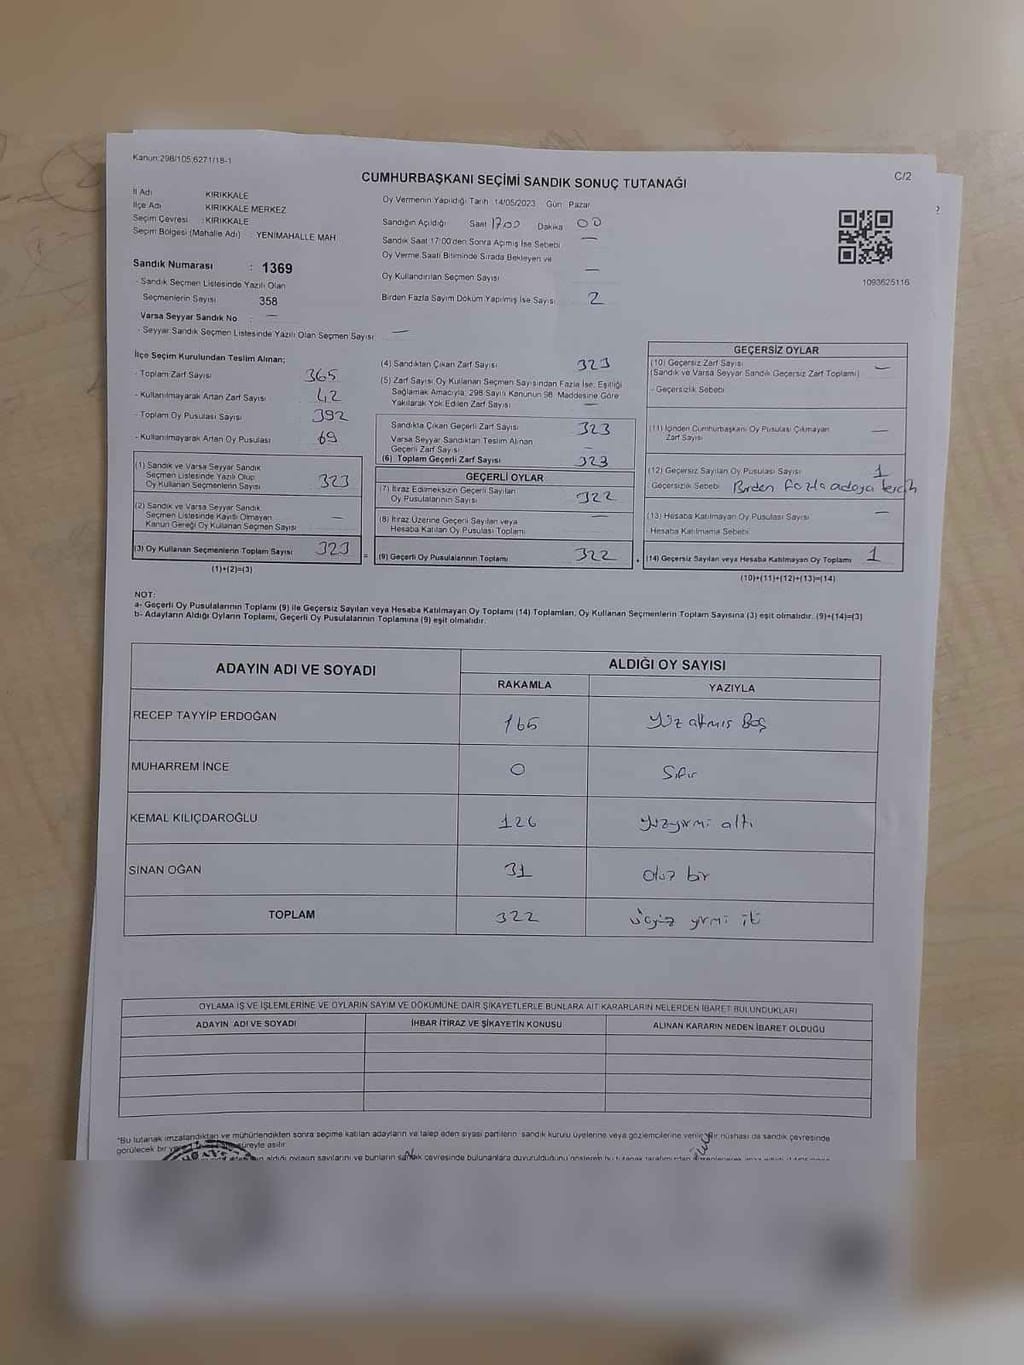 Kanun:298/105,6271/18-1
C/2
CUMHURBAŞKANI SEÇİMİ SANDIK SONUÇ TUTANAĞI
İl Adı KIRIKKALE
İlçe Adı KIRIKKALE MERKEZ
Seçim Çevresi : KIRIKKALE
Seçim Bölgesi (Mahalle Adı) : YENİMAHALLE MAH.
Sandık Numarası : 1369
- Sandık Seçmen Listesinde Yazılı Olan
Seçmenlerin Sayısı 358
Varsa Seyyar Sandık No —
- Seyyar Sandık Seçmen Listesinde Yazılı Olan Seçmen Sayısı —
Oy Vermenin Yapıldığı Tarih 14/05/2023 Gün Pazar
Sandığın Açıldığı Saat 17:00 Dakika 00
Sandık Saat 17:00'den Sonra Açılmış İse Sebebi —
Oy Verme Saati Bitiminde Sırada Bekleyen ve
Oy Kullandırılan Seçmen Sayısı —
Birden Fazla Sayım Döküm Yapılmış İse Sayısı 2
1093625116
İlçe Seçim Kurulundan Teslim Alınan;
- Toplam Zarf Sayısı 365
- Kullanılmayarak Artan Zarf Sayısı 42
- Toplam Oy Pusulası Sayısı 392
- Kullanılmayarak Artan Oy Pusulası 69
(1) Sandık ve Varsa Seyyar Sandık
Seçmen Listesinde Yazılı Olup
Oy Kullanan Seçmenlerin Sayısı 323
(2) Sandık ve Varsa Seyyar Sandık
Seçmen Listesinde Kayıtlı Olmayan
Kanun Gereği Oy Kullanan Seçmen Sayısı —
(3) Oy Kullanan Seçmenlerin Toplam Sayısı 323 =
(1)+(2)=(3)
(4) Sandıktan Çıkan Zarf Sayısı 323
(5) Zarf Sayısı Oy Kullanan Seçmen Sayısından Fazla İse, Eşitliği
Sağlamak Amacıyla; 298 Sayılı Kanunun 98. Maddesine Göre
Yakılarak Yok Edilen Zarf Sayısı —
Sandıkta Çıkan Geçerli Zarf Sayısı 323
Varsa Seyyar Sandıktan Teslim Alınan
Geçerli Zarf Sayısı —
(6) Toplam Geçerli Zarf Sayısı 323
GEÇERLİ OYLAR
(7) İtiraz Edilmeksizin Geçerli Sayılan
Oy Pusulalarının Sayısı 322
(8) İtiraz Üzerine Geçerli Sayılan veya
Hesaba Katılan Oy Pusulası Toplamı —
(9) Geçerli Oy Pusulalarının Toplamı 322
GEÇERSİZ OYLAR
(10) Geçersiz Zarf Sayısı
(Sandık ve Varsa Seyyar Sandık Geçersiz Zarf Toplamı) —
- Geçersizlik Sebebi
(11) İçinden Cumhurbaşkanı Oy Pusulası Çıkmayan
Zarf Sayısı —
(12) Geçersiz Sayılan Oy Pusulası Sayısı 1
Geçersizlik Sebebi Birden fazla adaya tercih
(13) Hesaba Katılmayan Oy Pusulası Sayısı —
Hesaba Katılmama Sebebi
(14) Geçersiz Sayılan veya Hesaba Katılmayan Oy Toplamı 1
(10)+(11)+(12)+(13)=(14)
NOT:
a- Geçerli Oy Pusulalarının Toplamı (9) ile Geçersiz Sayılan veya Hesaba Katılmayan Oy Toplamı (14) Toplamları, Oy Kullanan Seçmenlerin Toplam Sayısına (3) eşit olmalıdır. (9)+(14)=(3)
b- Adayların Aldığı Oyların Toplamı, Geçerli Oy Pusulalarının Toplamına (9) eşit olmalıdır.
ADAYIN ADI VE SOYADI ALDIĞI OY SAYISI
RAKAMLA YAZIYLA
RECEP TAYYİP ERDOĞAN 165 Yüz altmış Beş
MUHARREM İNCE 0 Sıfır
KEMAL KILIÇDAROĞLU 126 Yüzyirmi altı
SİNAN OĞAN 31 Otuz bir
TOPLAM 322 üçyüz yirmi iki
OYLAMA İŞ VE İŞLEMLERİNE VE OYLARIN SAYIM VE DÖKÜMÜNE DAİR ŞİKAYETLERLE BUNLARA AİT KARARLARIN NELERDEN İBARET BULUNDUKLARI
ADAYIN ADI VE SOYADI İHBAR İTİRAZ VE ŞİKAYETİN KONUSU ALINAN KARARIN NEDEN İBARET OLDUĞU
*Bu tutanak imzalandıktan ve mühürlendikten sonra seçime katılan adayların ve talep eden siyasi partilerin sandık kurulu üyelerine veya gözlemcilerine verilir. Bir nüshası da sandık çevresinde
görülecek bir süreyle asılır.
aldığı oyların sayılarını ve bunların sandık çevresinde bulunanlara duyurulduğunu gösteren bu tutanak